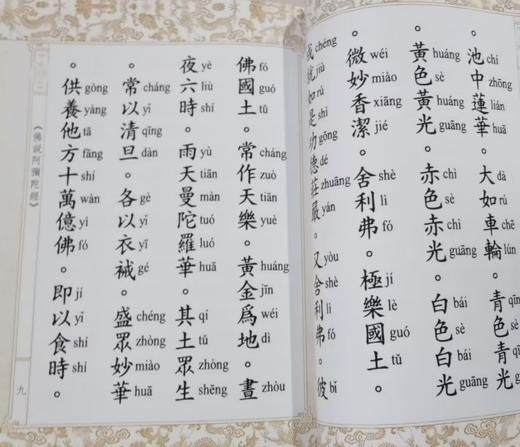 池chí中zhōng蓮lián華huā。大dà如rú車chē輪lún。青qīng色sè青qīng光guāng
。黃huáng色sè黃huáng光guāng。赤chì色sè赤chì光guāng。白bái色sè白bái光guāng
。微wéi妙miào香xiāng潔jié。舍shè利lì弗fó。極jí樂lè國guó土tǔ
成chéng就jiù如rú是shì功gōng德dé莊zhuāng嚴yán。又yòu舍shè利lì弗fó。彼bǐ
佛fó國guó土tǔ。常cháng作zuò天tiān樂yuè。黃huáng金jīn爲wéi地dì。晝zhòu
夜yè六liù時shí。雨yù天tiān曼màn陀tuó羅luó華huā。其qí土tǔ眾zhòng生shēng
。常cháng以yǐ清qīng旦dàn。各gè以yǐ衣yī裓gé。盛chéng眾zhòng妙miào華huā
。供gòng養yàng他tā方fāng十shí萬wàn億yì佛fó。即jí以yǐ食shí時shí
《佛說阿彌陀經》
九